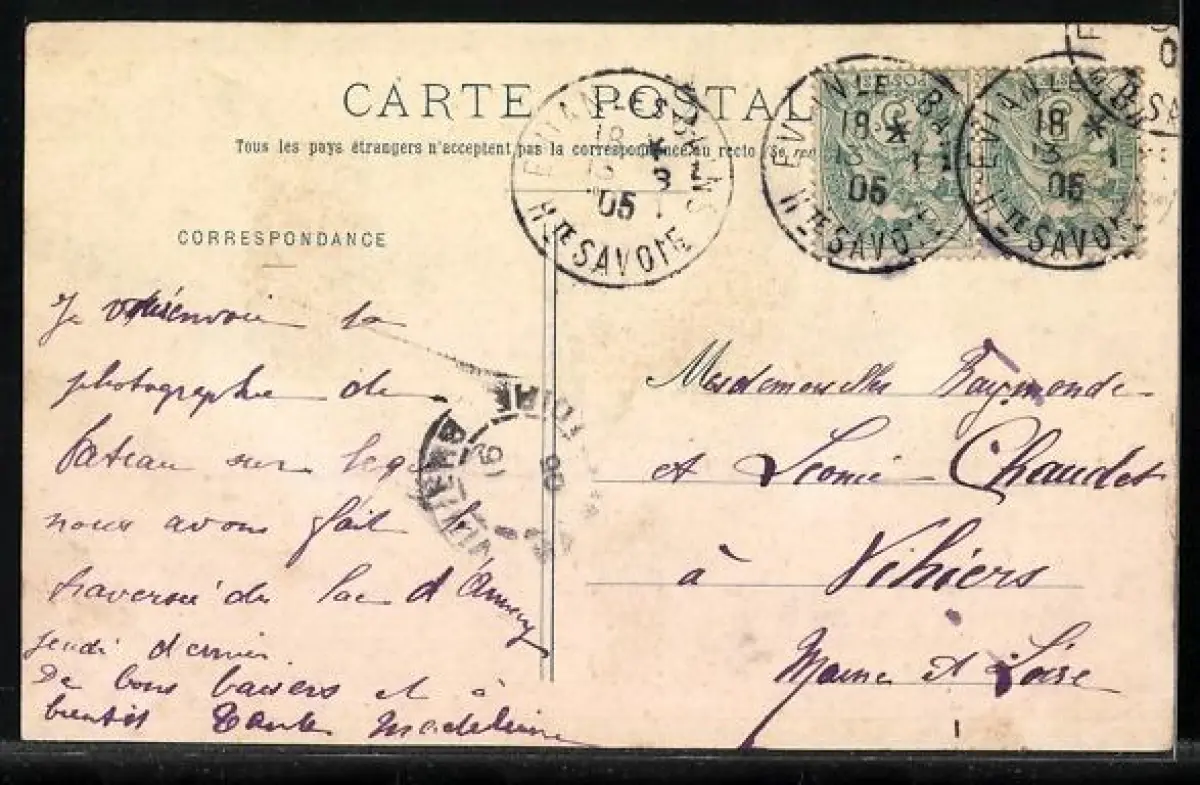 CARTE POSTALE
Tous les pays étrangers n'acceptent pas la correspondance au recto (Se
CORRESPONDANCE
EVIAN-LES-BAINS
18 *
13 3
05
HTE SAVOIE
EVIAN LES BAINS
18 *
13
05
HTE SAVOIE
EVIAN LES BAINS
18 *
13
05
HTE SAVOIE
POSTES
5
5
Je vous envoie la
photographie du
bateau sur lequel
nous avons fait la
traversée du lac d'Annecy
jeudi dernier.
De bons baisers et à
bientôt Tante Madeleine
Mesdemoiselles Raymonde
et Léonie Chaudet
à Vihiers
Maine et Loire